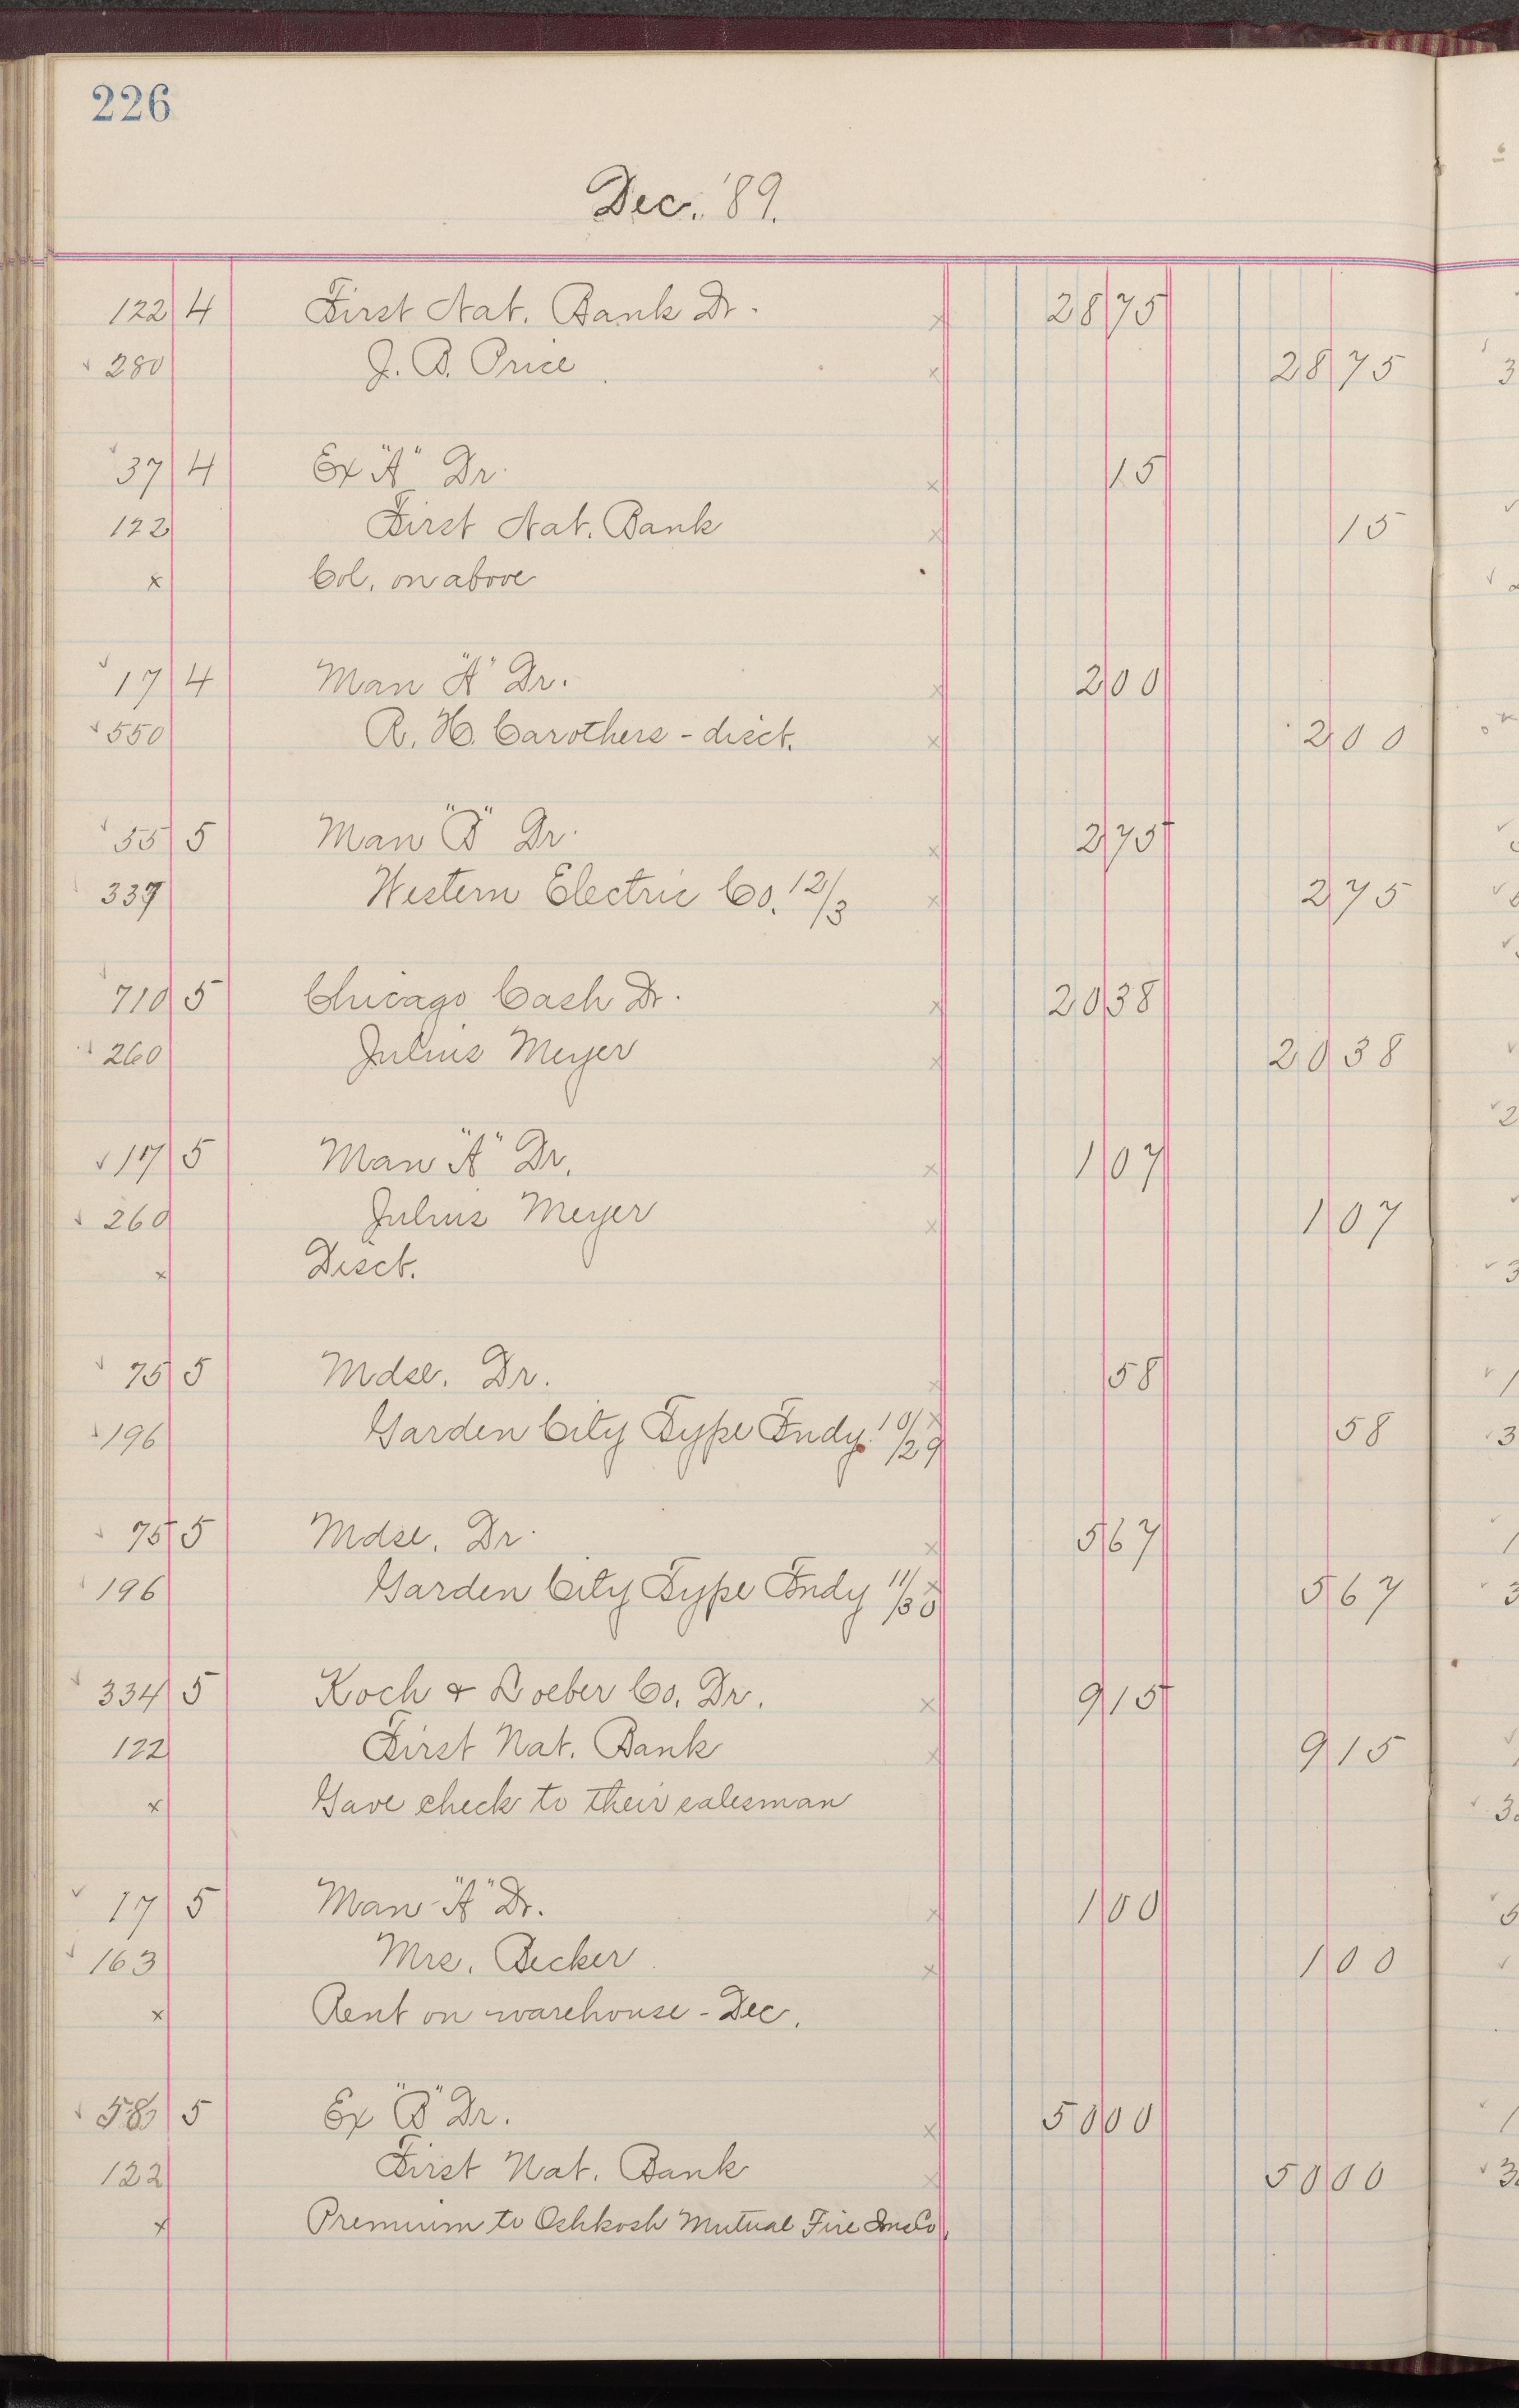 226
Dec. '89.
122 4 First Nat. Bank Dr. x 28 75
280 J. B. Price x 28 75
37 4 Ex "A" Dr. x 15
122 First Nat. Bank x 15
x Col. on above
17 4 Man "A" Dr. x 2 00
550 R. H. Carothers - disct. x 2 00
55 5 Man "B" Dr. x 2 75
337 Western Electric Co. 12/3 x 2 75
710 5 Chicago Cash Dr. x 20 38
260 Julius Meyer x 20 38
17 5 Man "A" Dr. x 1 07
260 Julius Meyer x 1 07
x Disct.
75 5 Mdse. Dr. x 58
196 Garden City Type Fndy. 10/29 x 58
75 5 Mdse. Dr. x 5 67
196 Garden City Type Fndy 11/30 x 5 67
334 5 Koch & Loeber Co. Dr. x 9 15
122 First Nat. Bank x 9 15
x Gave check to their salesman
17 5 Man "A" Dr. x 1 00
163 Mrs. Becker x 1 00
x Rent on warehouse - Dec.
58 5 Ex "B" Dr. x 50 00
122 First Nat. Bank x 50 00
x Premium to Oshkosh Mutual Fire Ins Co.